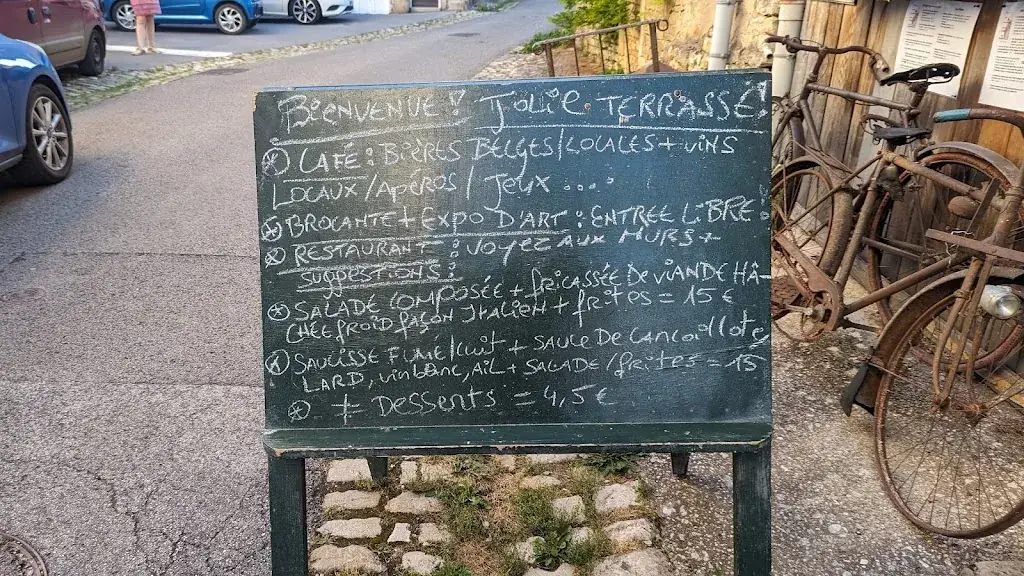 BIENVENUE! JOLIE TERRASSE!
CAFÉ: BIÈRES BELGES/LOCALES + VINS
LOCAUX/APÉROS/JEUX....
BROCANTE + EXPO D'ART: ENTREE LIBRE.
RESTAURANT: VOYEZ AUX MURS +
SUGGESTIONS:
SALADE COMPOSÉE + FRICASSÉE DE VIANDE HÂ-
CHÉE FROID FAÇON ITALIEN + FRITES = 15 €
SAUCISSE FUMÉ/CUIT + SAUCE DE CANCOILLOTE,
LARD, VIN BLANC, AIL + SALADE/FRITES = 15
≠ DESSERTS = 4,5 €